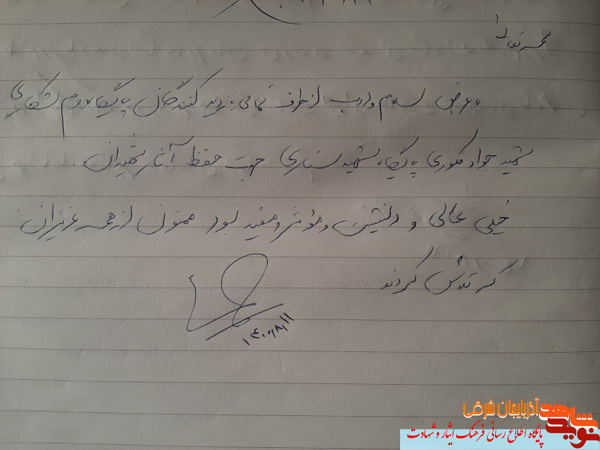 بسمه تعالی
با عرض سلام و ادب از طرف تمامی بازدید کنندگان پایگاه دوم شکاری
شهید جواد فکوری پایگاه شهید ستاری جهت حفظ آثار شهیدان.
خیلی عالی و دلنشین و مؤثر و مفید بود ممنون از همه عزیزان
که تلاش کردند
۱۴۰۰/۸/۱۱
آذربایجان شرقی
نوید شاهد
پایگاه اطلاع رسانی فرهنگ ایثار و شهادت